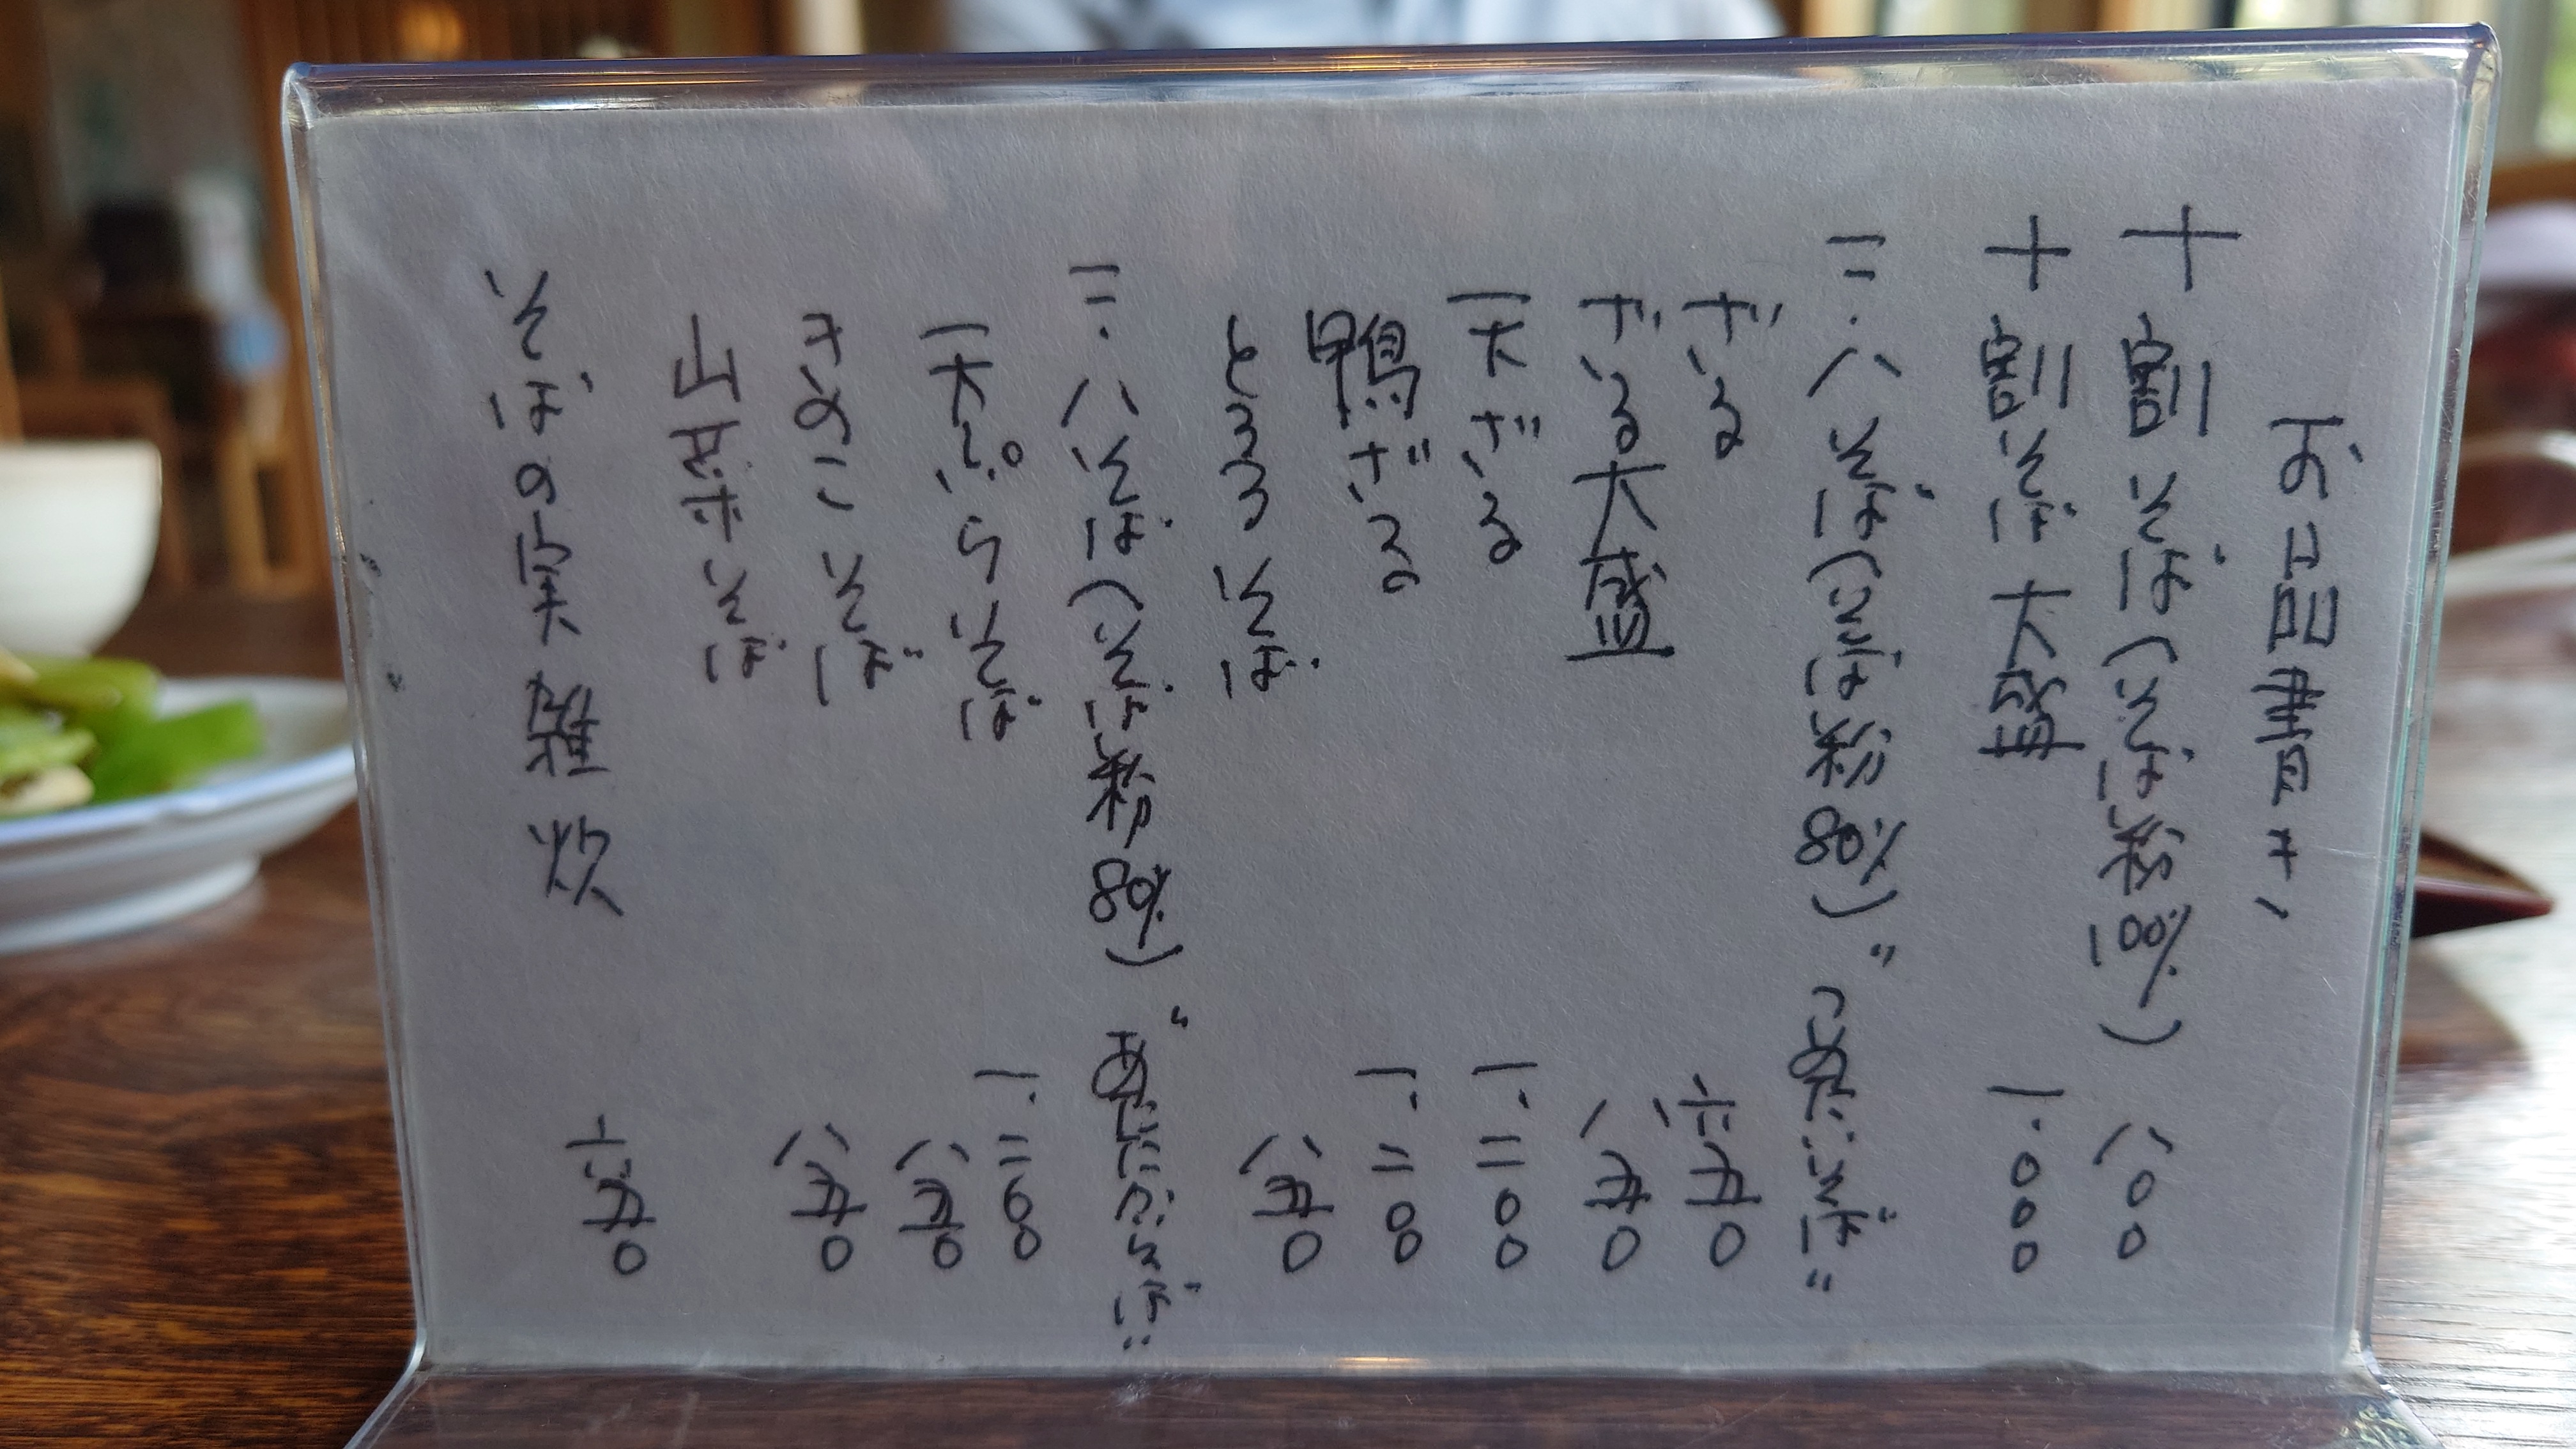 お品書き
十割そば(そば粉100%) 八00
十割そば大盛 一.000
二.八そば(そば粉80%)"つめたいそば"
ざる 六五0
ざる大盛 八五0
天ざる 一.二00
鴨ざる 一.二00
とろろそば 八五0
二.八そば(そば粉80%)"あたたかいそば"
天ぷらそば 一.二00
きのこそば 八五0
山菜そば 八五0
そばの実雑炊 六五0